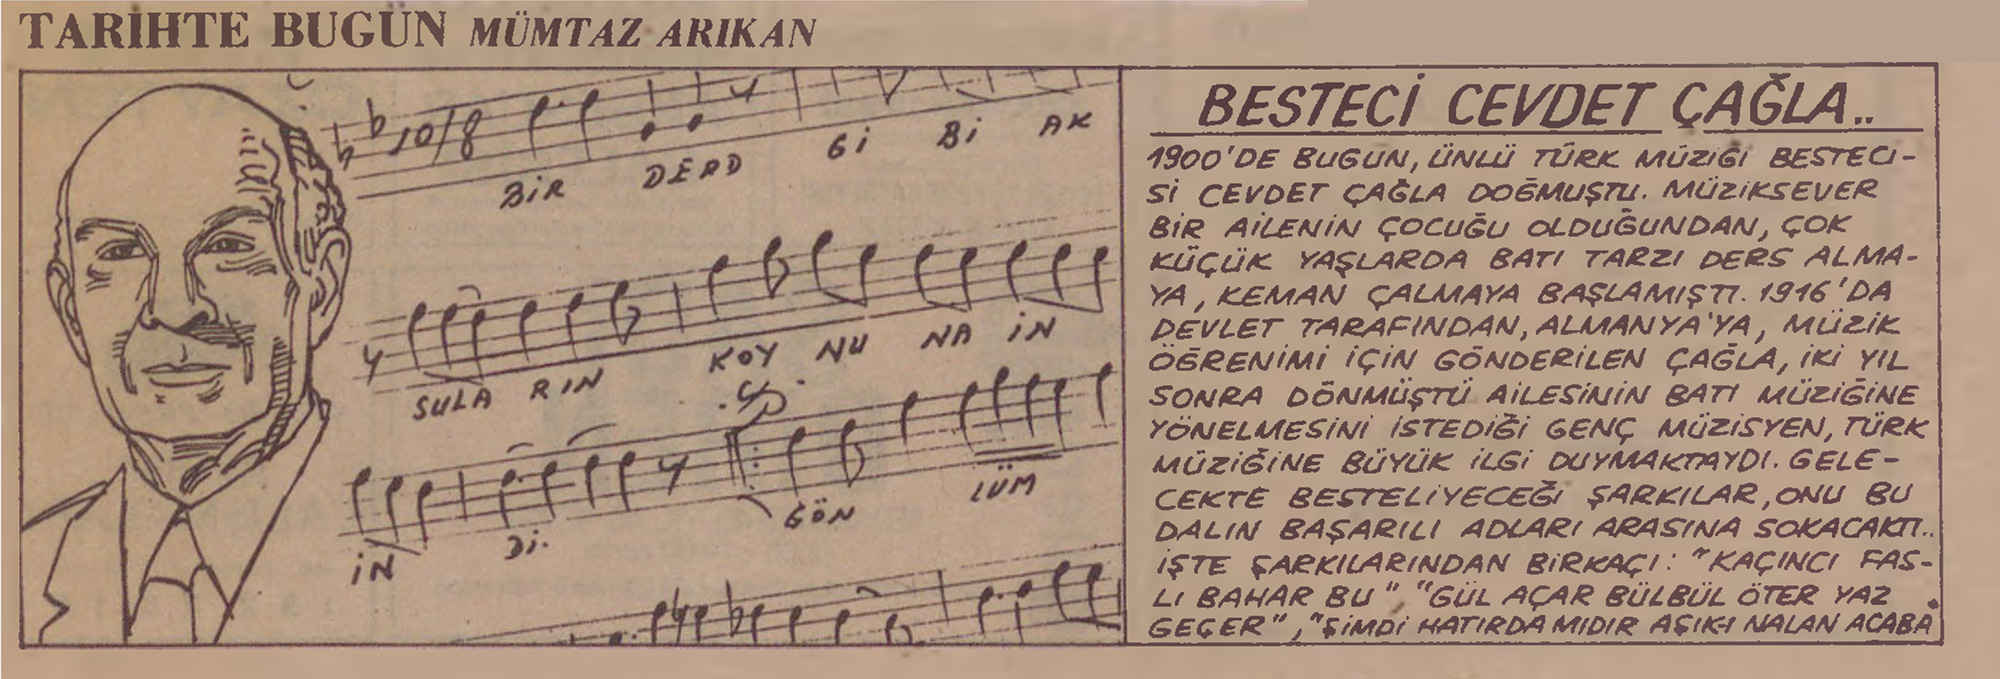 TARİHTE BUGÜN MÜMTAZ ARIKAN
10/8
BİR DERD Gİ Bİ AK
SULA RIN KOY NU NA İN
İN Dİ. GÖN LÜM
BESTECİ CEVDET ÇAĞLA..
1900'DE BUGÜN, ÜNLÜ TÜRK MÜZİĞİ BESTECİ-
Sİ CEVDET ÇAĞLA DOĞMUŞTU. MÜZİKSEVER
BİR AİLENİN ÇOCUĞU OLDUĞUNDAN, ÇOK
KÜÇÜK YAŞLARDA BATI TARZI DERS ALMA-
YA, KEMAN ÇALMAYA BAŞLAMIŞTI. 1916'DA
DEVLET TARAFINDAN, ALMANYA'YA, MÜZİK
ÖĞRENİMİ İÇİN GÖNDERİLEN ÇAĞLA, İKİ YIL
SONRA DÖNMÜŞTÜ AİLESİNİN BATI MÜZİĞİNE
YÖNELMESİNİ İSTEDİĞİ GENÇ MÜZİSYEN, TÜRK
MÜZİĞİNE BÜYÜK İLGİ DUYMAKTAYDI. GELE-
CEKTE BESTELİYECEĞİ ŞARKILAR, ONU BU
DALIN BAŞARILI ADLARI ARASINA SOKACAKTI..
İŞTE ŞARKILARINDAN BİRKAÇI: "KAÇINCI FAS-
LI BAHAR BU" "GÜL AÇAR BÜLBÜL ÖTER YAZ
GEÇER", "ŞİMDİ HATIRDA MIDIR AŞIK-I NALAN ACABA